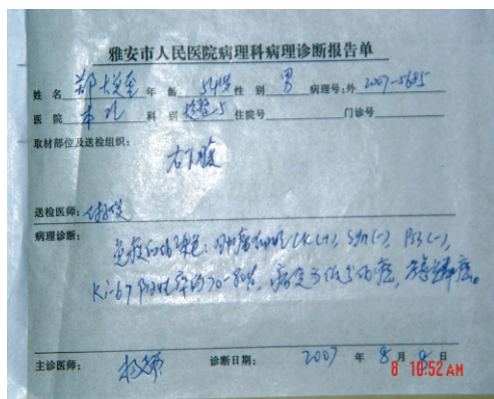 雅安市人民医院病理科病理诊断报告单
姓 名 郑 年 龄 54岁 性 别 男 病理号:外 2007-5685
医 院 本院 科 别 住院号 门诊号
取材部位及送检组织:
右下腹
送检医师:
病理诊断:
免疫组化染色:肿瘤细胞CK(+), Syn(-), P53(-),
Ki-67阳性率约70-80%, 癌,
主诊医师: 诊断日期: 2007 年 8 月 8 日
8 10:52AM